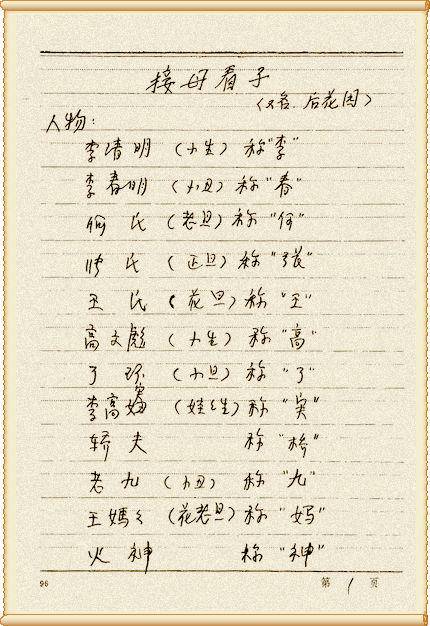 接母看子
(又名:后花园)
人物:
李清明 (小生) 称"李"
李春明 (小丑) 称"春"
何氏 (老旦) 称"何"
氏 (正旦) 称"张"
王氏 (花旦) 称"王"
高文彪 (小生) 称"高"
丫环 (小旦) 称"丫"
李高 (娃生) 称
轿夫 称"轿"
老九 (小丑) 称"九"
王媽々 (花老旦) 称"妈"
火神 称"神"
96 第 1 页